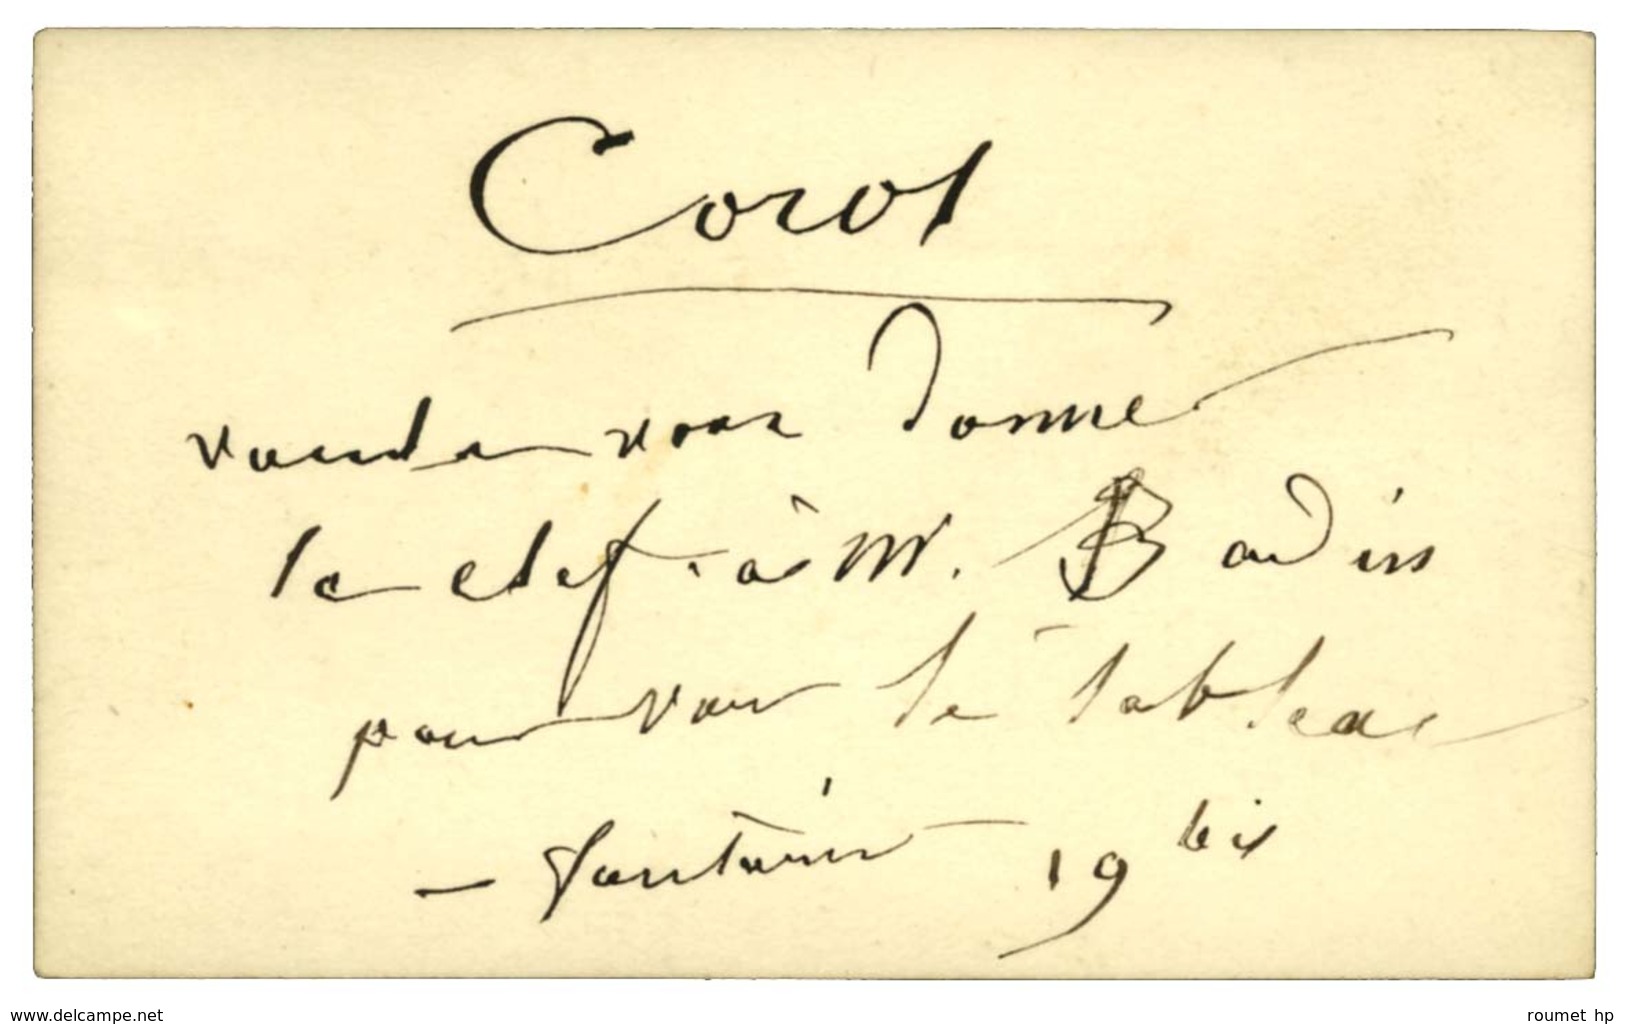 Corot
voudra vous donner
la clef. à M. Badin
pour voir le tableau
— fontaine 19 bis
www.delcampe.net
roumet hp